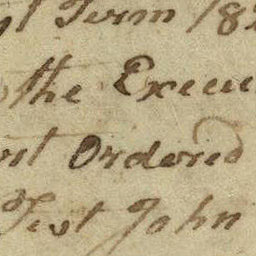 Term 182
the Execu
Ordered
Test John